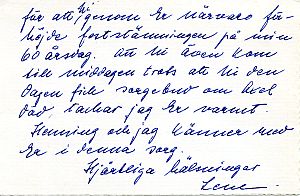 för att Ni genom Er närvaro för-
höjde feststämningen på min
60 årsdag. Att Ni även kom
till middagen trots att Ni den
dagen fick sorgebud om
död, tackar jag Er varmt.
Henning och jag känner med
Er i denna sorg.
Hjärtliga hälsningar
Lene